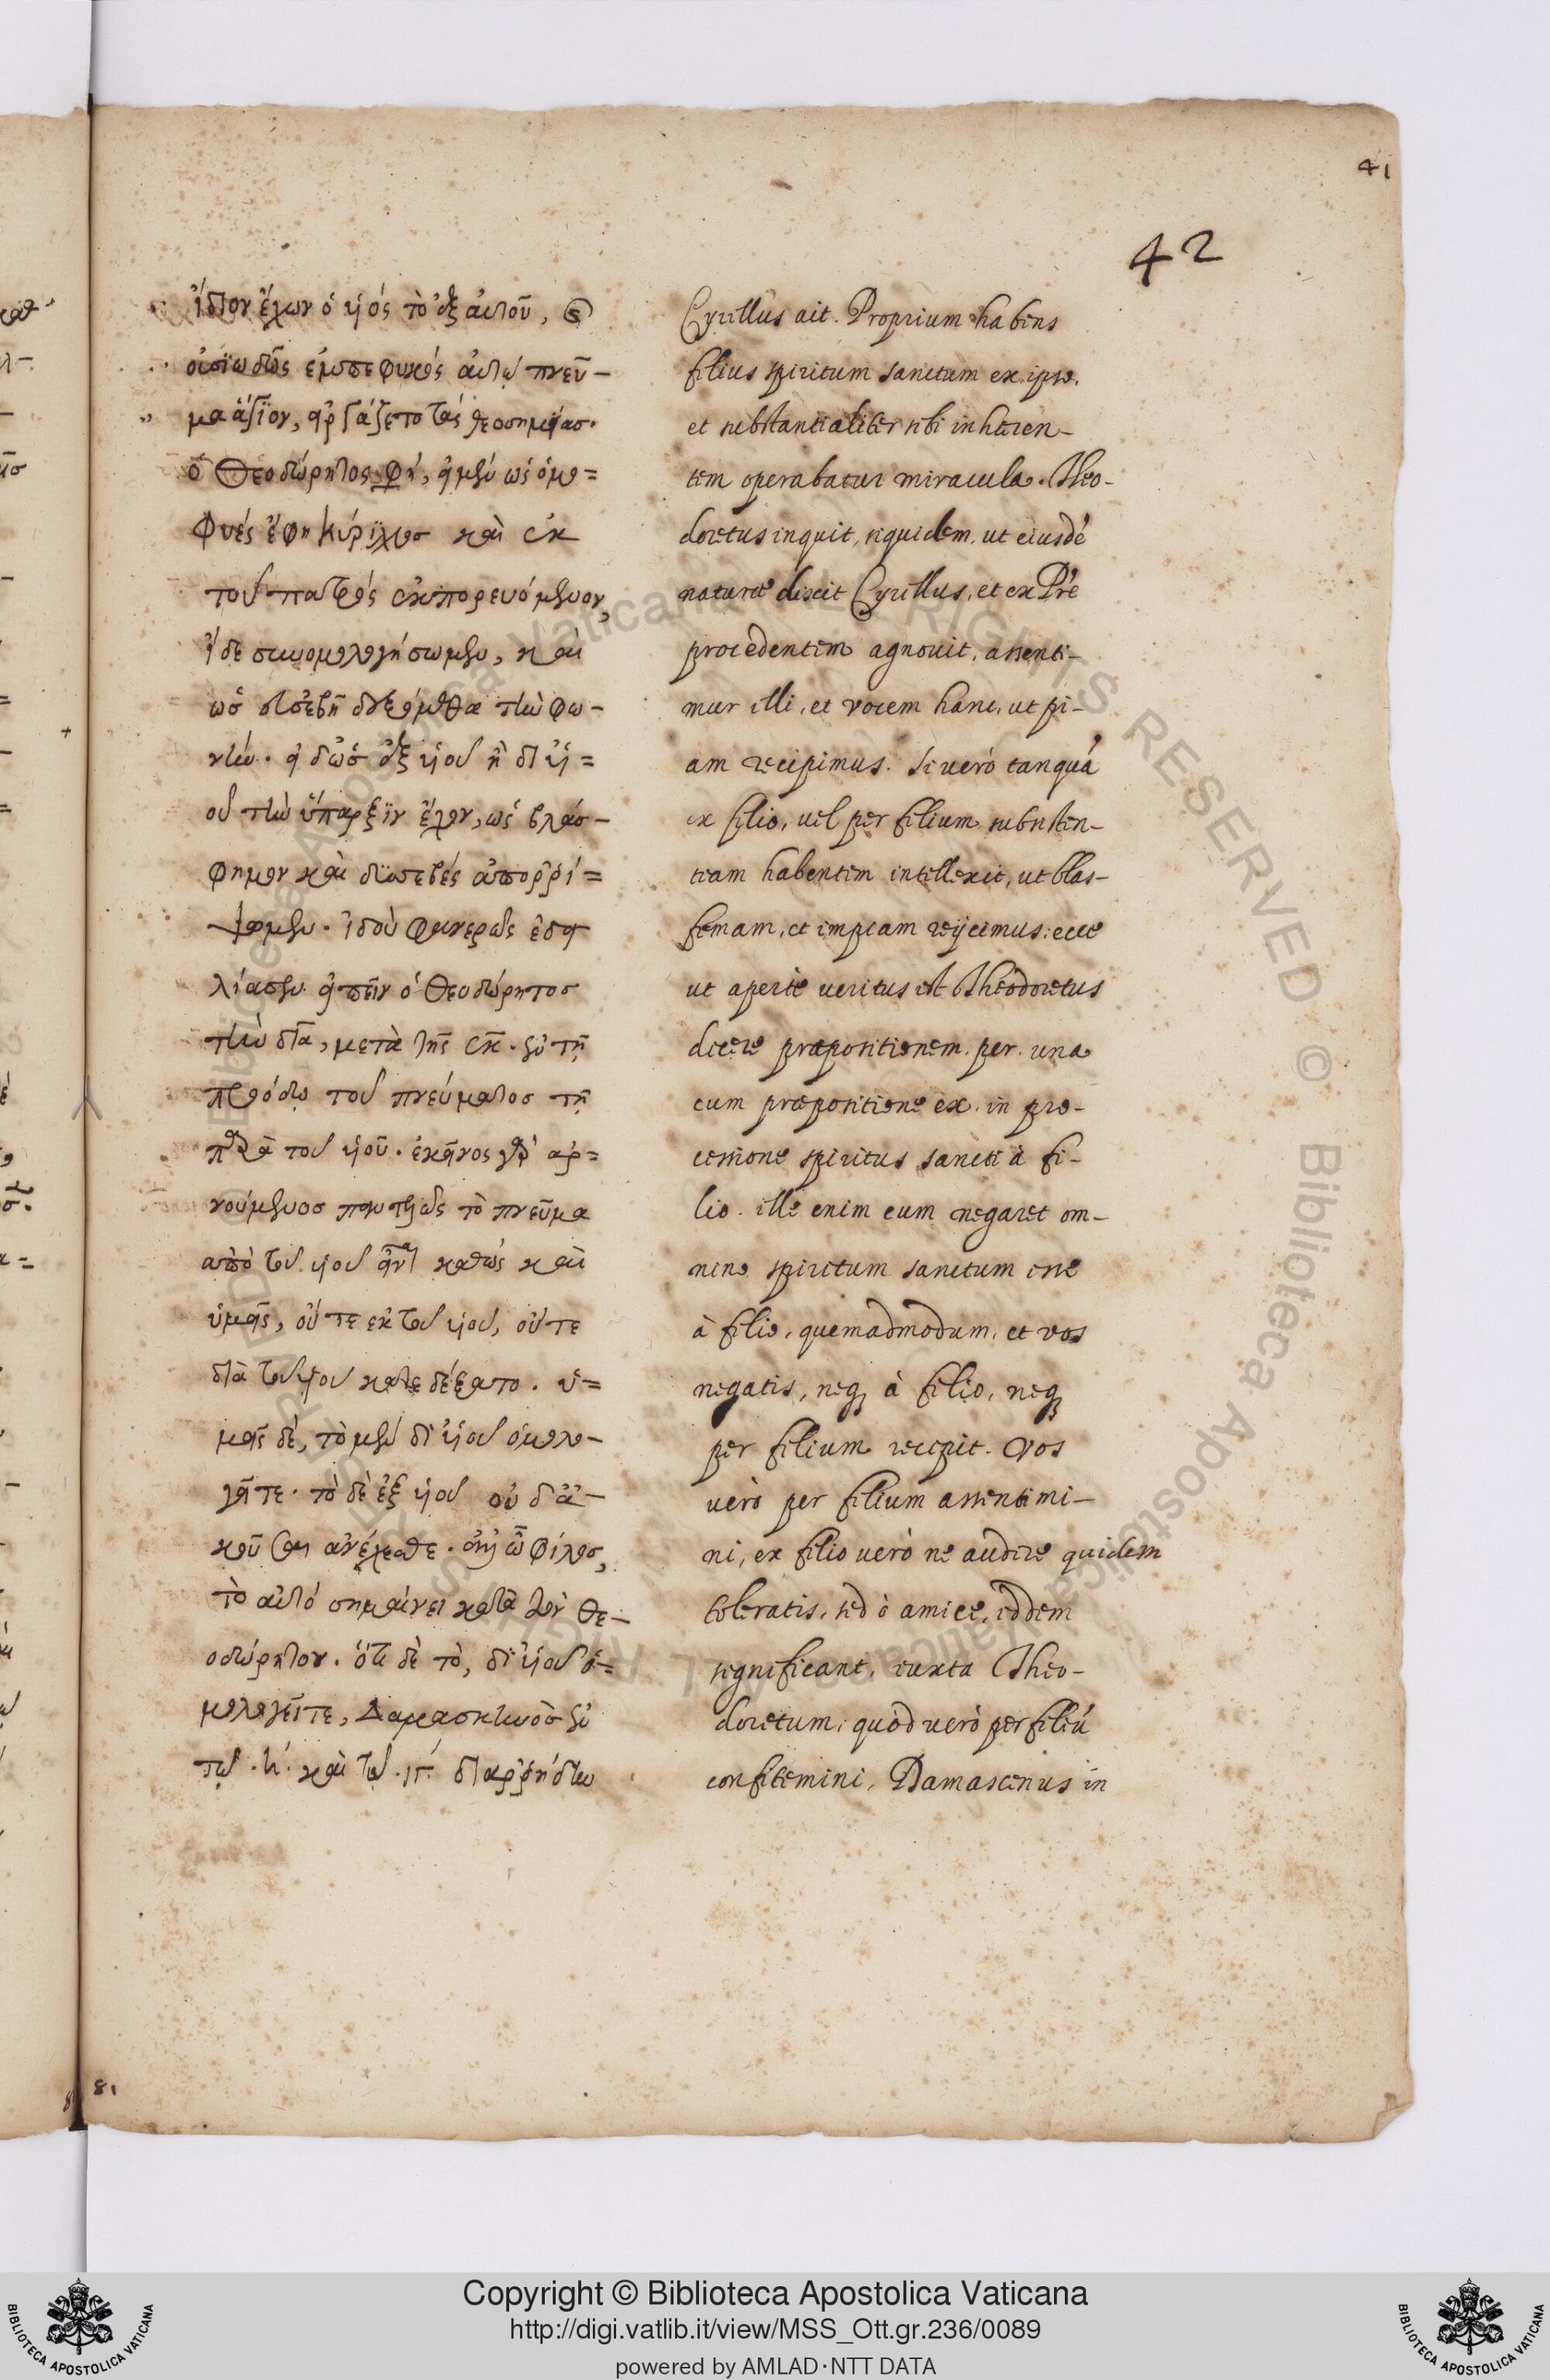 41
42
ἴδιον ἔχων ὁ υἱός τὸ ἐξ αὐτοῦ, καὶ
οὐσιωδῶς ἐμπεφυκός αὐτῷ πνεῦ-
μα ἅγιον, εἰργάζετο τὰς θεοσημείας.
ὁ Θεοδώρητος φη, εἰ μὲν ὡς ὁμο=
φυές ἔφη κύριλλος καὶ ἐκ
τοῦ πατρός ἐκπορευόμενον,
συνομολογήσωμεν, καὶ
ὡς εὐσεβῆ δεξόμεθα τὴν φω-
νήν. εἰ δ' ὡς ἐξ υἱοῦ ἢ δι υἱ=
οῦ τὴν ὕπαρξιν ἔχον, ὡς βλάσ-
φημον καὶ δυσσεβές ἀπορρί=
ψομεν. ἰδοὺ φανερῶς ἐδει
λίασεν εἰπεῖν ὁ Θεοδώρητος
τὴν διὰ, μετὰ τῆς ἐκ. ἐν τῇ
προόδῳ τοῦ πνεύματος τῇ
παρὰ τοῦ υἱοῦ. ἐκεῖνος γὰρ ἀρ=
νούμενος παντελῶς τὸ πνεῦμα
ἀπὸ τοῦ υἱοῦ εἶναι καθὼς καὶ
ὑμεῖς, οὔτε ἐκ τοῦ υἱοῦ, οὔτε
διὰ τοῦ υἱοῦ κατεδέξατο. ὑ=
μεῖς δέ, τὸ μὲν δι' υἱοῦ ὁμολο-
γεῖτε. τὸ δὲ ἐξ υἱοῦ οὐδ' ἀ-
κοῦσαι ἀνέχεσθε. ὦ φίλος,
τὸ αὐτό σημαίνει κατὰ τὸν Θε-
οδώρητον. ὅτι δὲ τὸ, δι' υἱοῦ ὁ=
μολογεῖτε, Δαμασκηνὸς ἐν
τῷ .η΄. καὶ τῷ .ιγ΄. διαρρήδην
Cyrillus ait. Proprium habens
filius spiritum sanctum ex ipso,
et substantialiter sibi inhæren-
tem operabatur miracula. Theo-
doretus inquit, siquidem, ut eiusdē
naturæ dixit Cyrillus, et ex Pre
procedentem agnovit, assenti-
mur illi, et vocem hanc, ut pi-
am recipimus. Si verò tanquā
ex filio, vel per filium subsisten-
tiam habentem intellexit, ut blas-
femam, et impiam reijcimus: ecce
ut apertè veritus est Theodoretus
dicere præpositionem. per. una
cum præpositione ex. in pro-
cessione spiritus sancti à fi-
lio. ille enim cum negaret om-
nino spiritum sanctum esse
à filio, quemadmodum, et vos
negatis, neq; à filio, neq;
per filium recepit. Vos
verò per filium assentimi-
ni, ex filio verò ne audire quidem
toleratis, sed ò amice, eddem
significant, iuxta Theo-
doretum, quòd verò per filiū
confitemini, Damascenus in
81
Copyright © Biblioteca Apostolica Vaticana
http://digi.vatlib.it/view/MSS_Ott.gr.236/0089
powered by AMLAD·NTT DATA